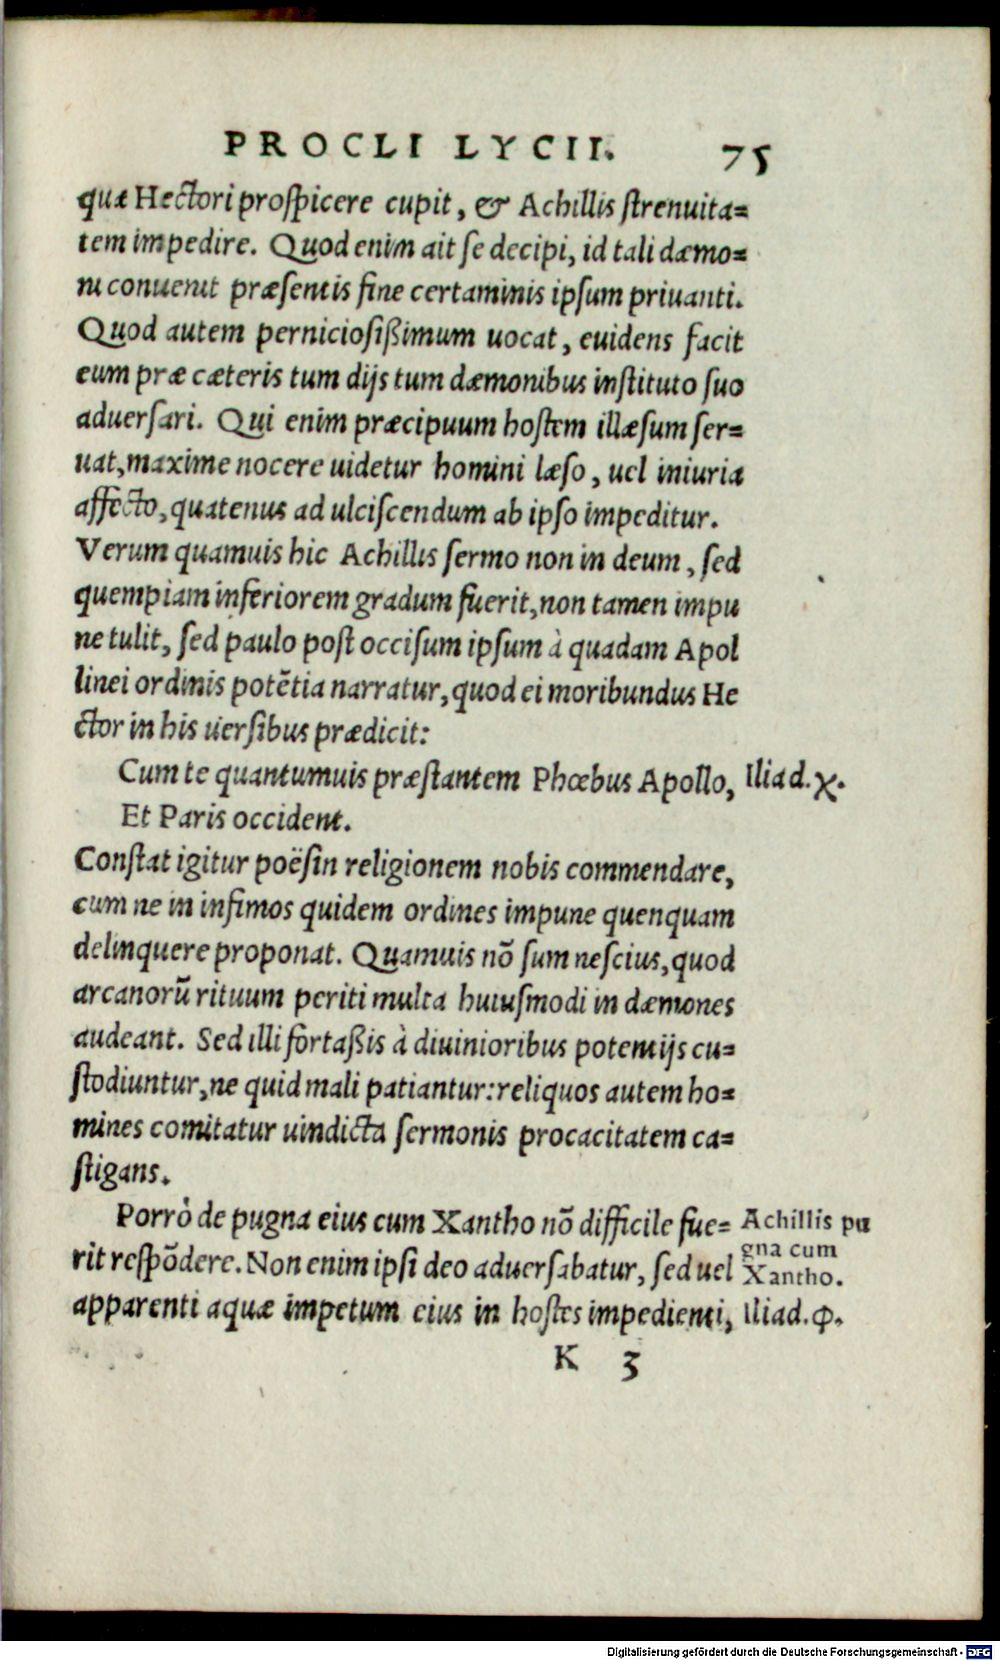 PROCLI LYCII. 75
quæ Hectori prospicere cupit, & Achillis strenuita=
tem impedire. Quod enim ait se decipi, id tali dæmo=
ni conuenit præsentis fine certaminis ipsum priuanti.
Quod autem perniciosißimum uocat, euidens facit
eum præ cæteris tum dijs tum dæmonibus instituto suo
aduersari. Qui enim præcipuum hostem illæsum ser=
uat, maxime nocere uidetur homini læso, uel iniuria
affecto, quatenus ad ulciscendum ab ipso impeditur.
Verum quamuis hic Achillis sermo non in deum, sed
quempiam inferiorem gradum fuerit, non tamen impu
ne tulit, sed paulo post occisum ipsum à quadam Apol
linei ordinis potẽtia narratur, quod ei moribundus He
ctor in his uersibus prædicit:
Cum te quantumuis præstantem Phœbus Apollo, Iliad. χ.
Et Paris occident.
Constat igitur poësin religionem nobis commendare,
cum ne in infimos quidem ordines impune quenquam
delinquere proponat. Quamuis nõ sum nescius, quod
arcanorũ rituum periti multa huiusmodi in dæmones
audeant. Sed illi fortaßis à diuinioribus potentijs cu=
stodiuntur, ne quid mali patiantur: reliquos autem ho=
mines comitatur uindicta sermonis procacitatem ca=
stigans.
Porrò de pugna eius cum Xantho nõ difficile fue= Achillis pu
rit respõdere. Non enim ipsi deo aduersabatur, sed uel gna cum
Xantho.
apparenti aquæ impetum eius in hostes impedienti, Iliad. φ.
K 3
Digitalisierung gefördert durch die Deutsche Forschungsgemeinschaft - DFG